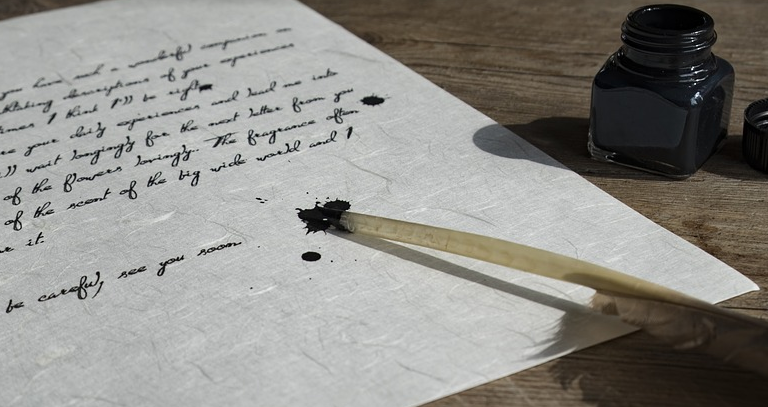 you have such a wonderful companion in
descriptions of your experiences
times I think I'll be right
re your daily experiences and lead me into
I'll wait longingly for the next letter from you
of the flowers lovingly. The fragrance often
of the scent of the big wide world and I
r it.
be careful, see you soon